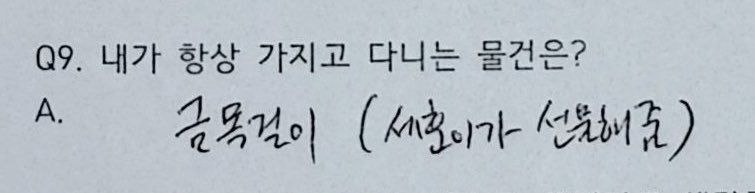 Q9. 내가 항상 가지고 다니는 물건은?
A. 금목걸이 (세호이가 선물해줌)